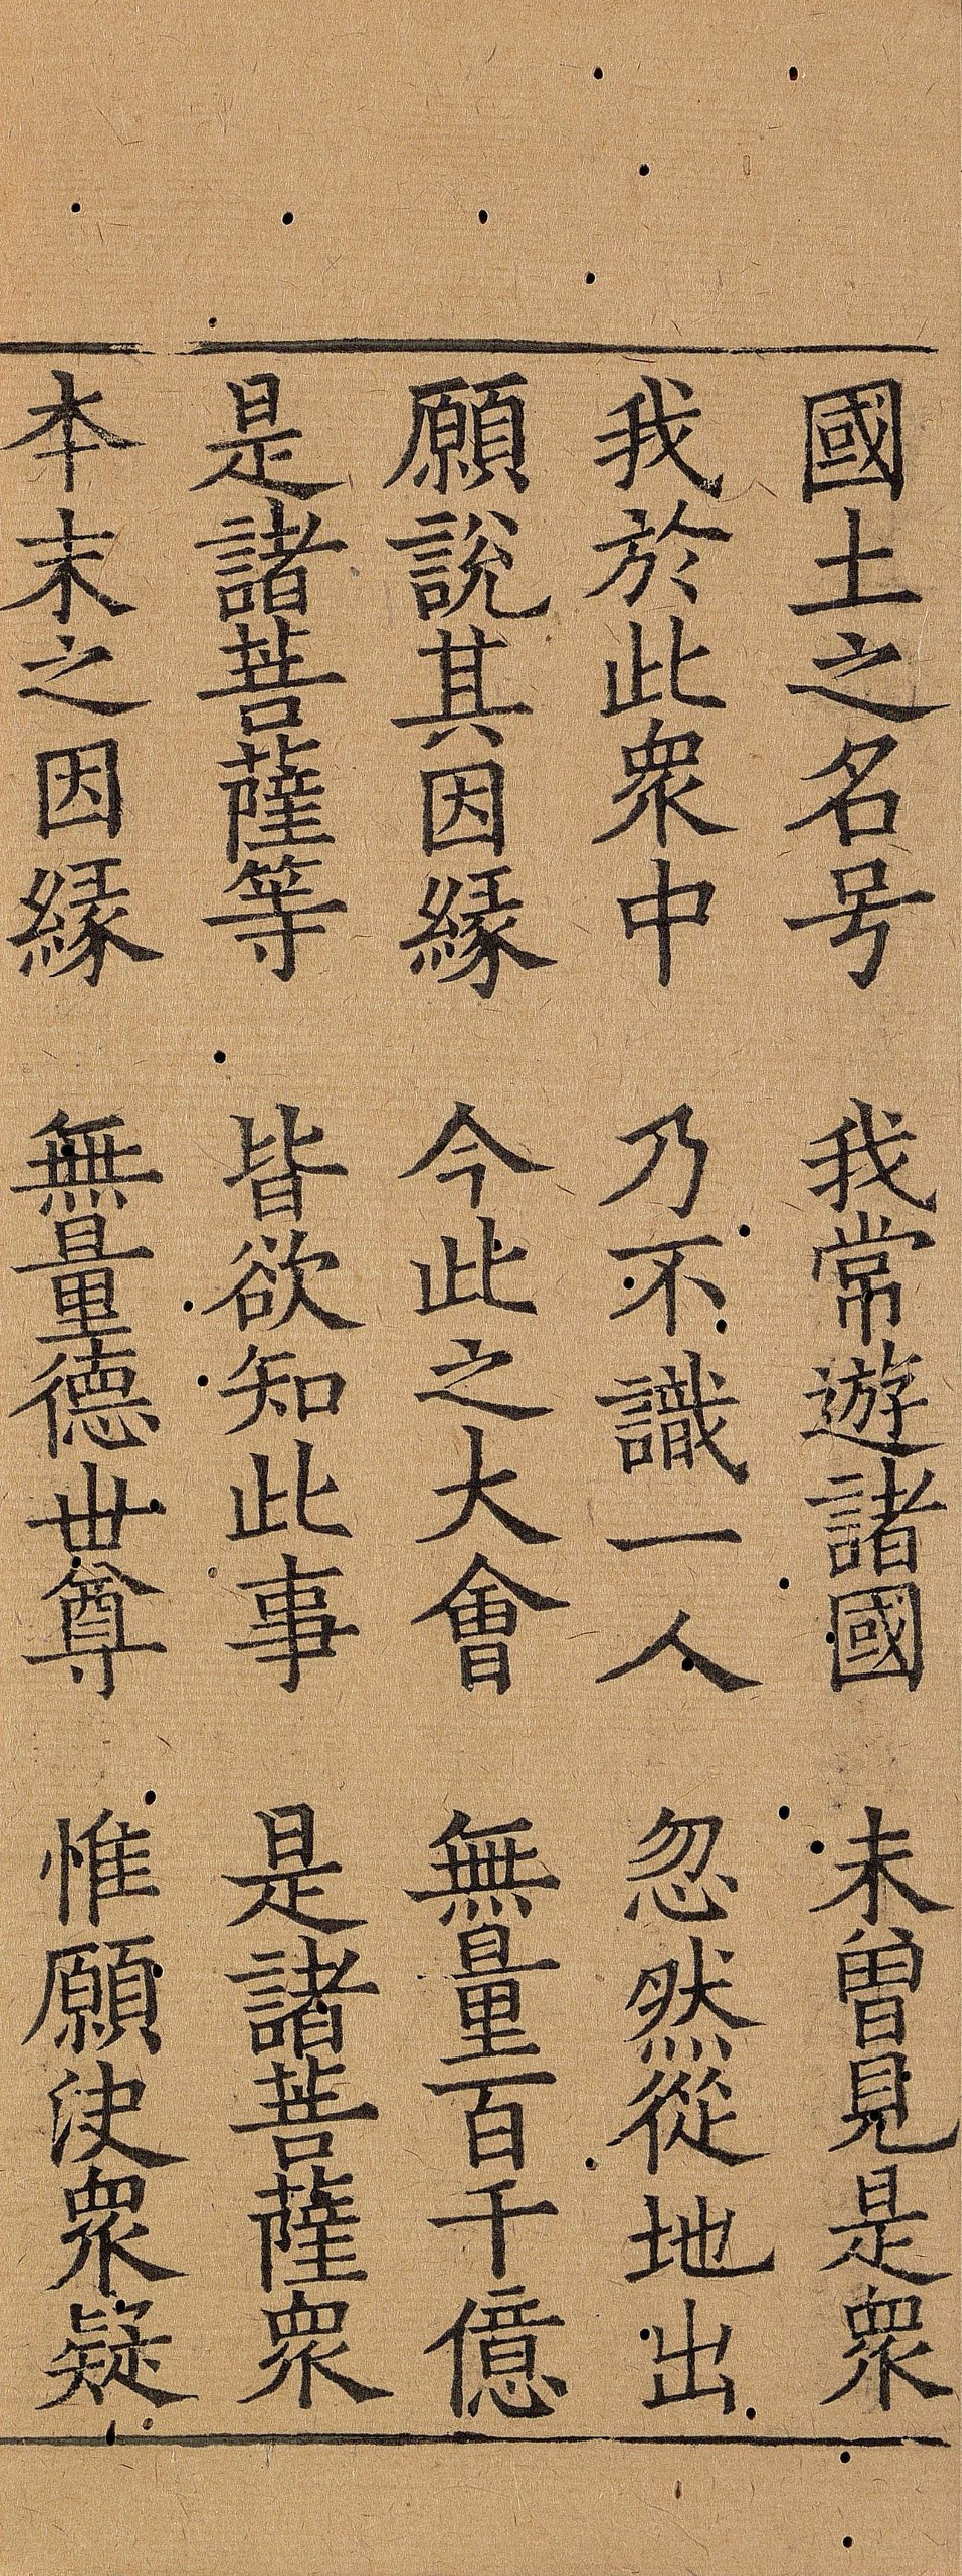 國土之名号　我常遊諸國　未曾見是衆
我於此衆中　乃不識一人　忽然從地出
願說其因緣　今此之大會　無量百千億
是諸菩薩等　皆欲知此事　是諸菩薩衆
本末之因緣　無量德世尊　惟願决衆疑